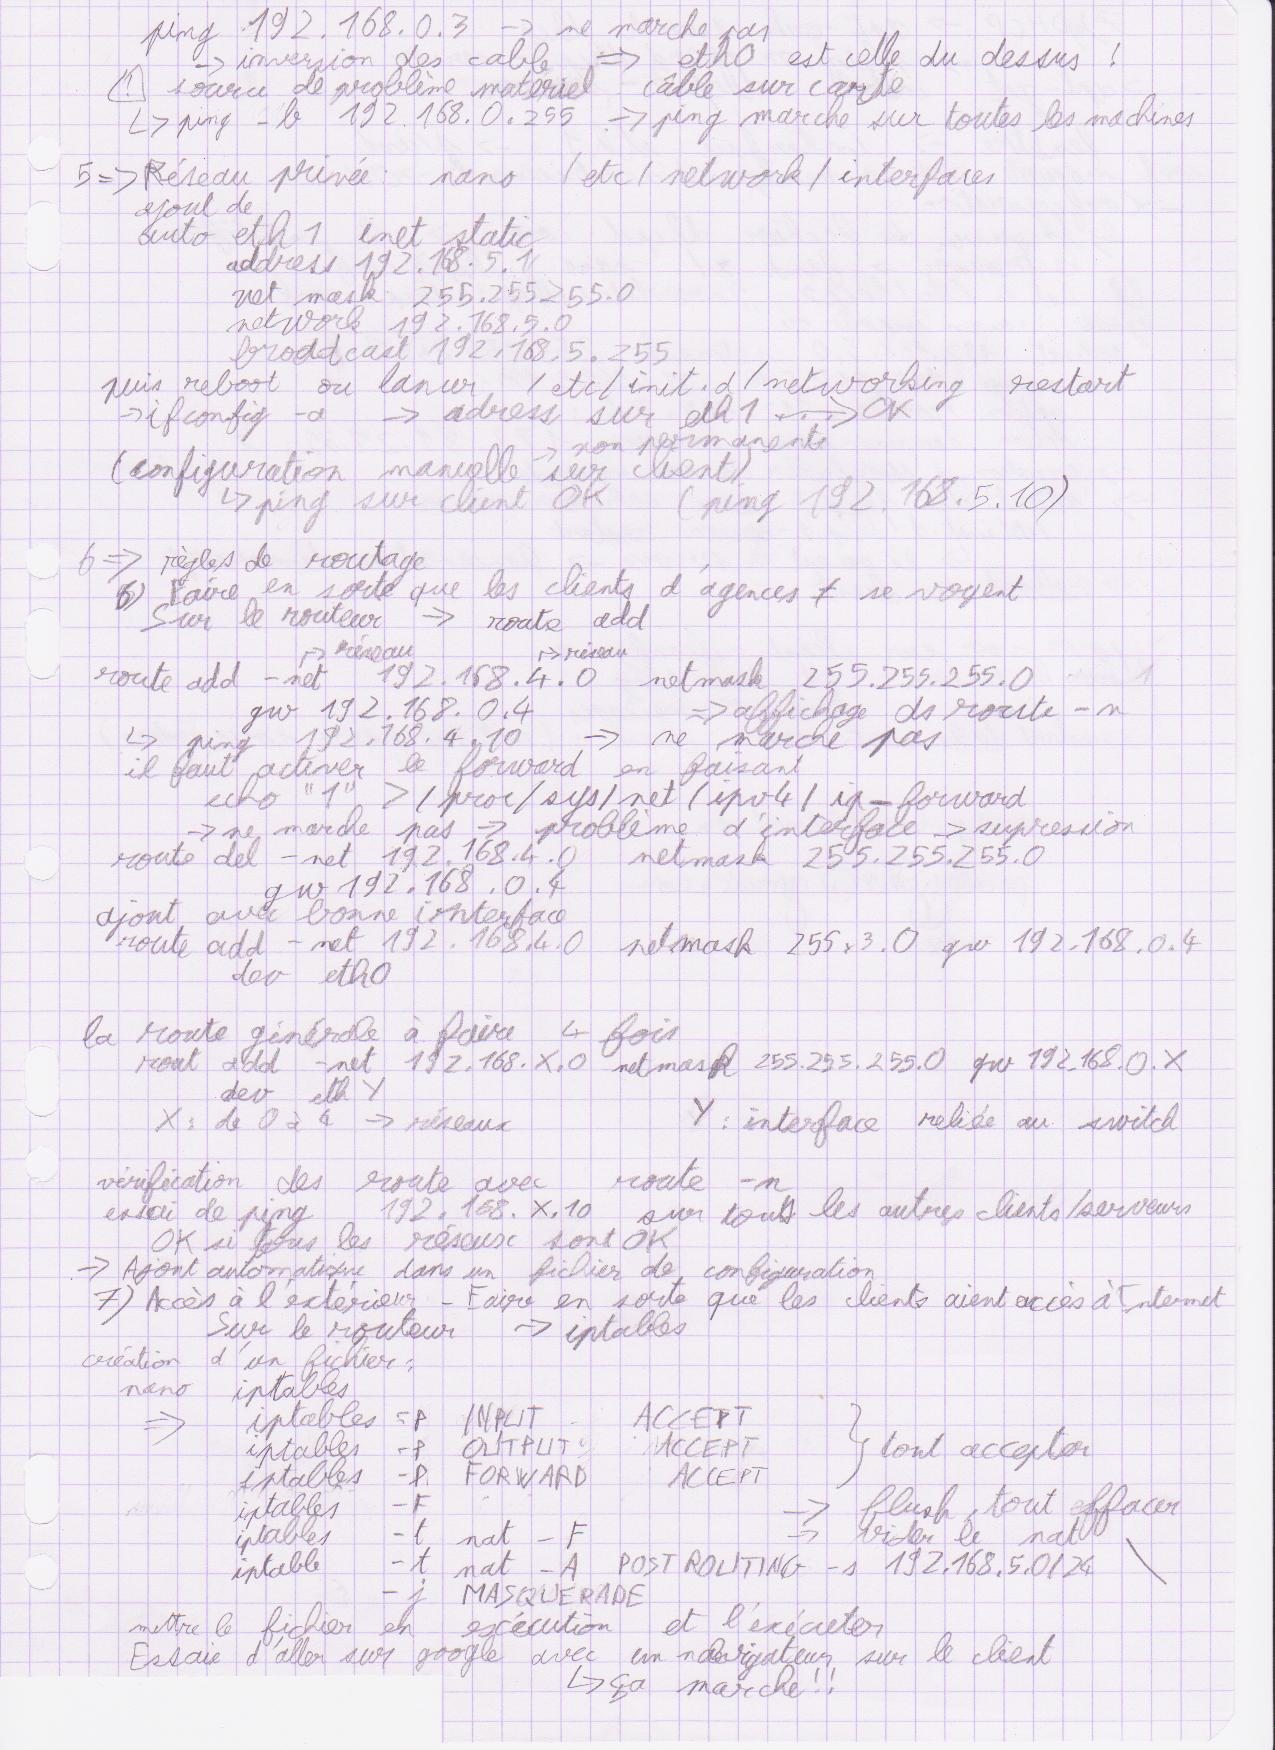 ping 192.168.0.3 -> ne marche pas
-> inversion des cable => eth0 est celle du dessus !
/!\ source de problème matériel câble sur carte
↳ ping -b 192.168.0.255 -> ping marche sur toutes les machines
5=> Réseau privée: nano /etc/network/interfaces
ajout de
auto eth1 inet static
address 192.168.5.1
net mask 255.255.255.0
network 192.168.5.0
broddcast 192.168.5.255
puis reboot ou lancer /etc/init.d/networking restart
-> ifconfig -a -> adress sur eth1 <...-> OK
-> non permanente
(configuration manuelle sur client)
↳ ping sur client OK (ping 192.168.5.10)
6=> règles de routage
6) Faire en sorte que les clients d'agences ≠ se voyent
Sur le routeur -> route add
↦ réseau ↦ réseau
route add -net 192.168.4.0 netmask 255.255.255.0
gw 192.168.0.4 => affichage ds route -n
↳ ping 192.168.4.10 -> ne marche pas
il faut activer le forward en faisant
echo "1" > /proc/sys/net/ipv4/ip_forward
-> ne marche pas -> problème d'interface -> supression
route del -net 192.168.4.0 netmask 255.255.255.0
gw 192.168.0.4
ajout avec bonne interface
route add -net 192.168.4.0 netmask 255x3.0 gw 192.168.0.4
dev eth0
la route générale à faire 4 fois
rout add -net 192.168.X.0 netmask 255.255.255.0 gw 192.168.0.X
dev eth Y
X: de 0 à 4 -> réseaux Y: interface reliée au switch
vérification des route avec route -n
essai de ping 192.168.X.10 sur tous les autres clients/serveurs
OK si tous les réseaux sont OK
-> Ajout automatique dans un fichier de configuration
7) Accès à l'extérieur - Faire en sorte que les clients aient accès à Internet
Sur le routeur -> iptables
création d'un fichier:
nano iptables
=> iptables -P INPUT ACCEPT
iptables -P OUTPUT ACCEPT } tout accepter
iptables -P FORWARD ACCEPT
iptables -F -> flush, tout effacer
iptables -t nat -F -> vider le nat
iptable -t nat -A POSTROUTING -s 192.168.5.0/24 \
-j MASQUERADE
mettre le fichier en exécution et l'exécuter
Essaie d'aller sur google avec un navigateur sur le client
↳ ça marche!!